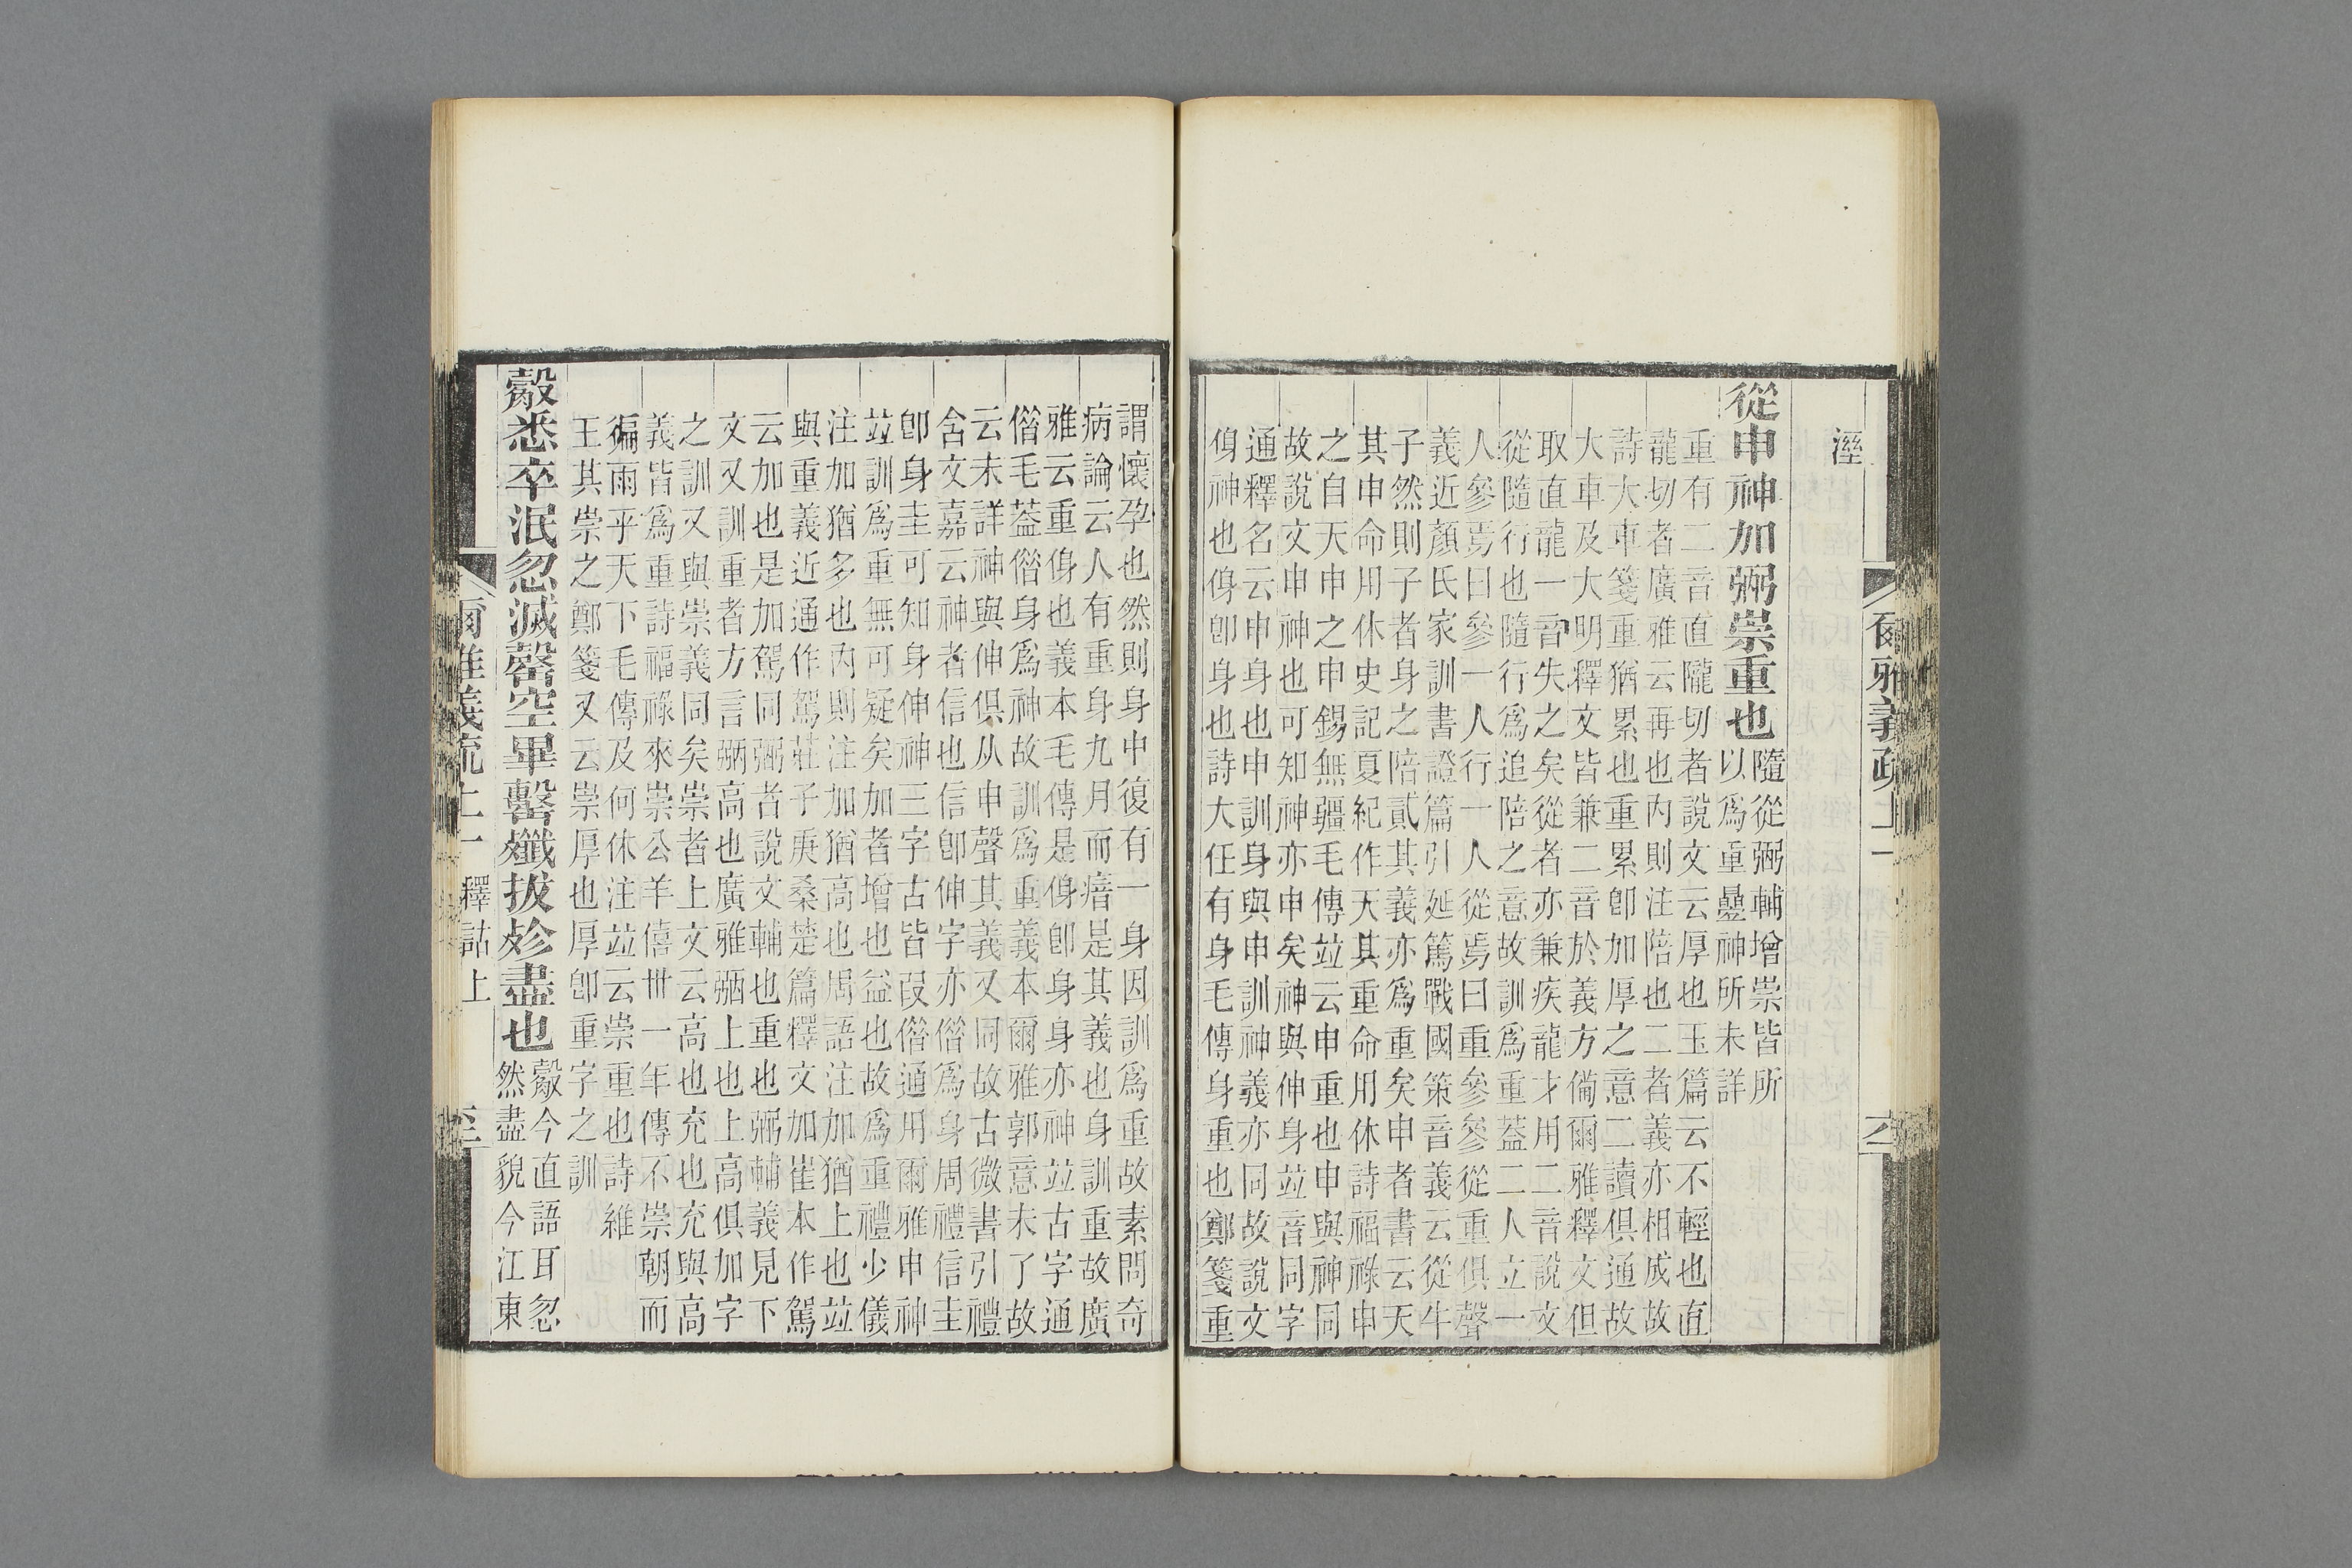 溼
從申神加弼崇重也
隨從弼輔增崇皆所
以爲重疊神所未詳
重有二音直隴切者說文云厚也玉篇云不輕也直
龍切者廣雅云再也內則注陪也二者義亦相成故
詩大車箋重猶累也重累卽加厚之意二讀俱通故
大車及大明釋文皆兼二音於義方備爾雅釋文但
取直龍一音失之矣從者亦兼疾龍才用二音說文
從隨行也隨行爲追陪之意故訓爲重蓋二人立一
人參焉曰參一人行一人從焉曰重參參從重俱聲
義近顏氏家訓書證篇引延篤戰國策音義云從牛
子然則子者身之陪貳其義亦爲重矣申者書云天
其申命用休史記夏紀作天其重命用休詩福祿申
之自天申之申錫無疆毛傳竝云申重也申與神同
故說文申神也可知神亦申矣神與伸身竝音同字
通釋名云申身也申訓身與申訓神義亦同故說文
㑗神也㑗卽身也詩大任有身毛傳身重也鄭箋重
爾雅義疏上一
謂懷孕也然則身中復有一身因訓爲重故素問奇
病論云人有重身九月而瘖是其義也身訓重故廣
雅云重㑗也義本毛傳是㑗卽身身亦神竝古字通
偺毛葢偺身爲神故訓爲重義本爾雅郭意未了故
云未詳神與伸俱从申聲其義又同故古微書引禮
含文嘉云神者信也信卽伸字亦偺爲身周禮信圭
卽身圭可知身伸神三字古皆叚偺通用爾雅申神
竝訓爲重無可疑矣加者增也益也故爲重禮少儀
注加猶多也內則注加猶高也周語注加猶上也竝
與重義近通作駕莊子庚桑楚篇釋文加崔本作駕
云加也是加駕同弼者說文輔也重也弼輔義見下
文又訓重者方言弼高也廣雅弼上也上高俱加字
之訓又與崇義同矣崇者上文云高也充也充與高
義皆爲重詩福祿來崇公羊僖卅一年傳不崇朝而
徧雨乎天下毛傳及何休注竝云崇重也詩維
王其崇之鄭箋又云崇厚也厚卽重字之訓
觳悉卒泯忽滅罄空畢罊殲拔殄盡也
觳今直語耳忽
然盡貌今江東
爾雅義疏上一 釋詁上